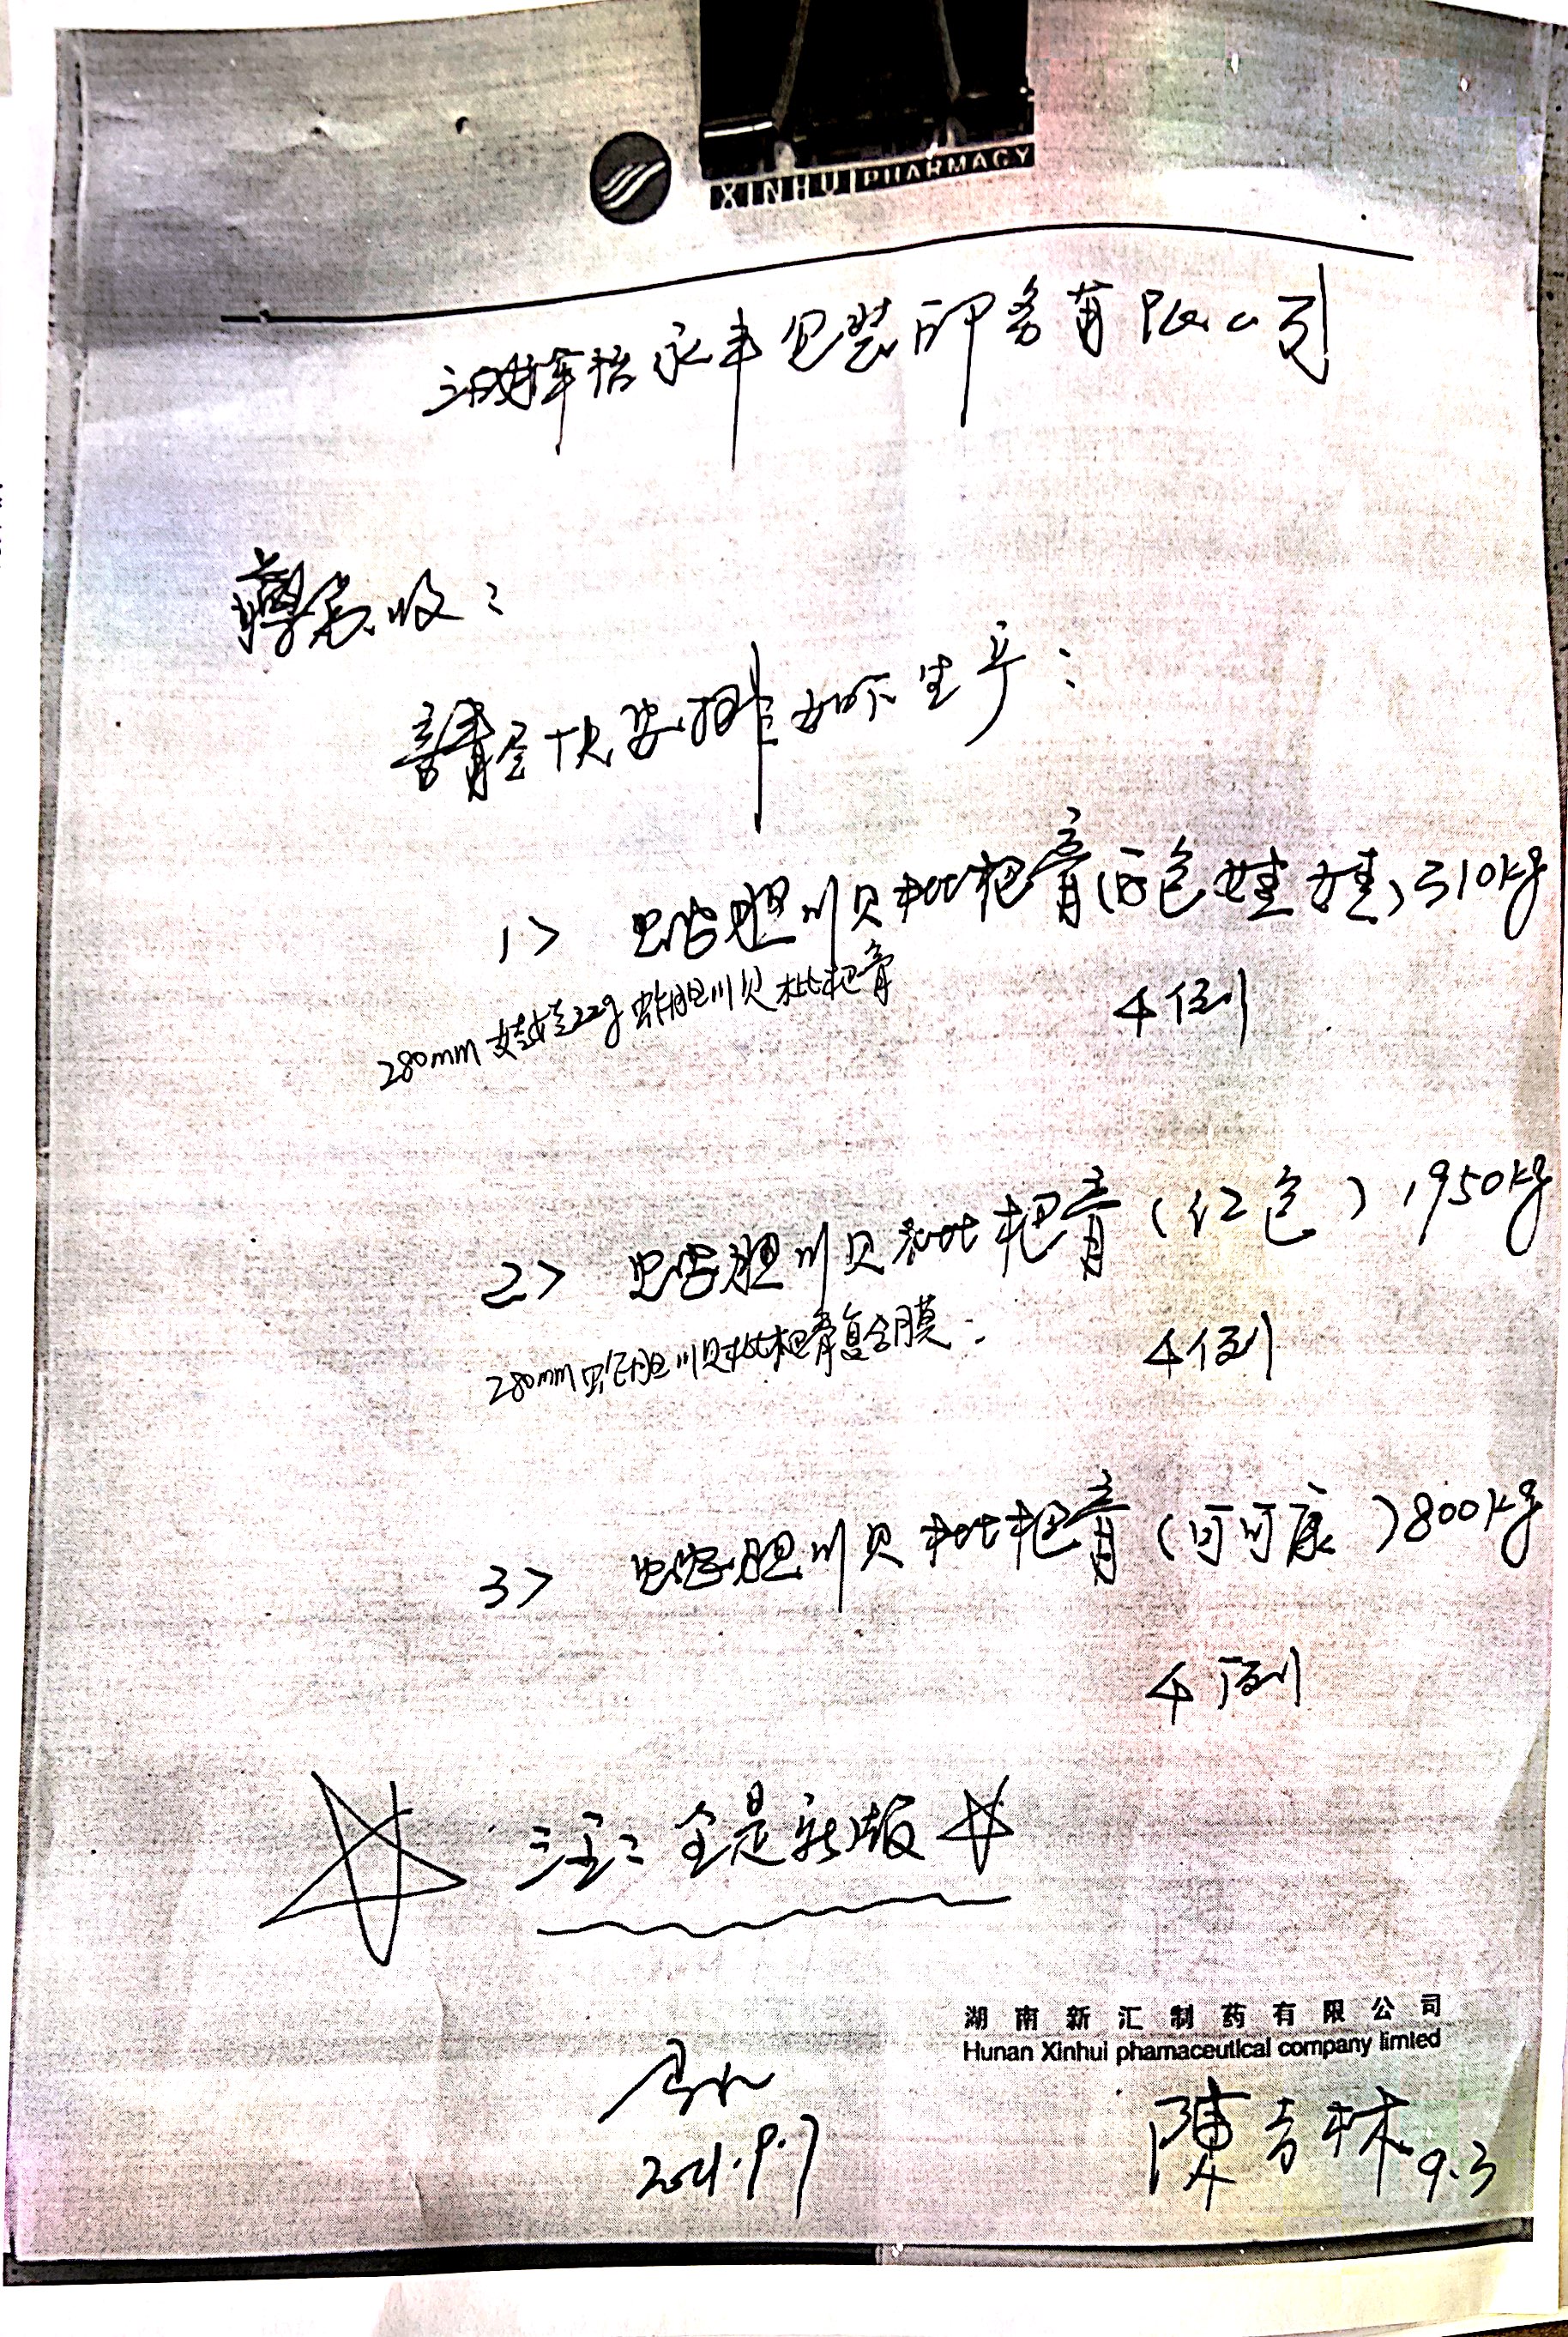 XINHUI PHARMACY
永丰包装印务有限公司
收：
請尽快安排如下生产：
1> 蛇胆川贝枇杷膏(白色娃娃)310kg
280mm 娃娃22g 蛇胆川贝枇杷膏
4列
2> 蛇胆川贝枇杷膏(红色) 1950kg
280mm 蛇胆川贝枇杷膏复合膜：
4列
3> 蛇胆川贝枇杷膏(可可康)800kg
4列
注：全是新版
湖南新汇制药有限公司
Hunan Xinhui phamaceutical company limted
2021.9.7
陳吉林 9.3